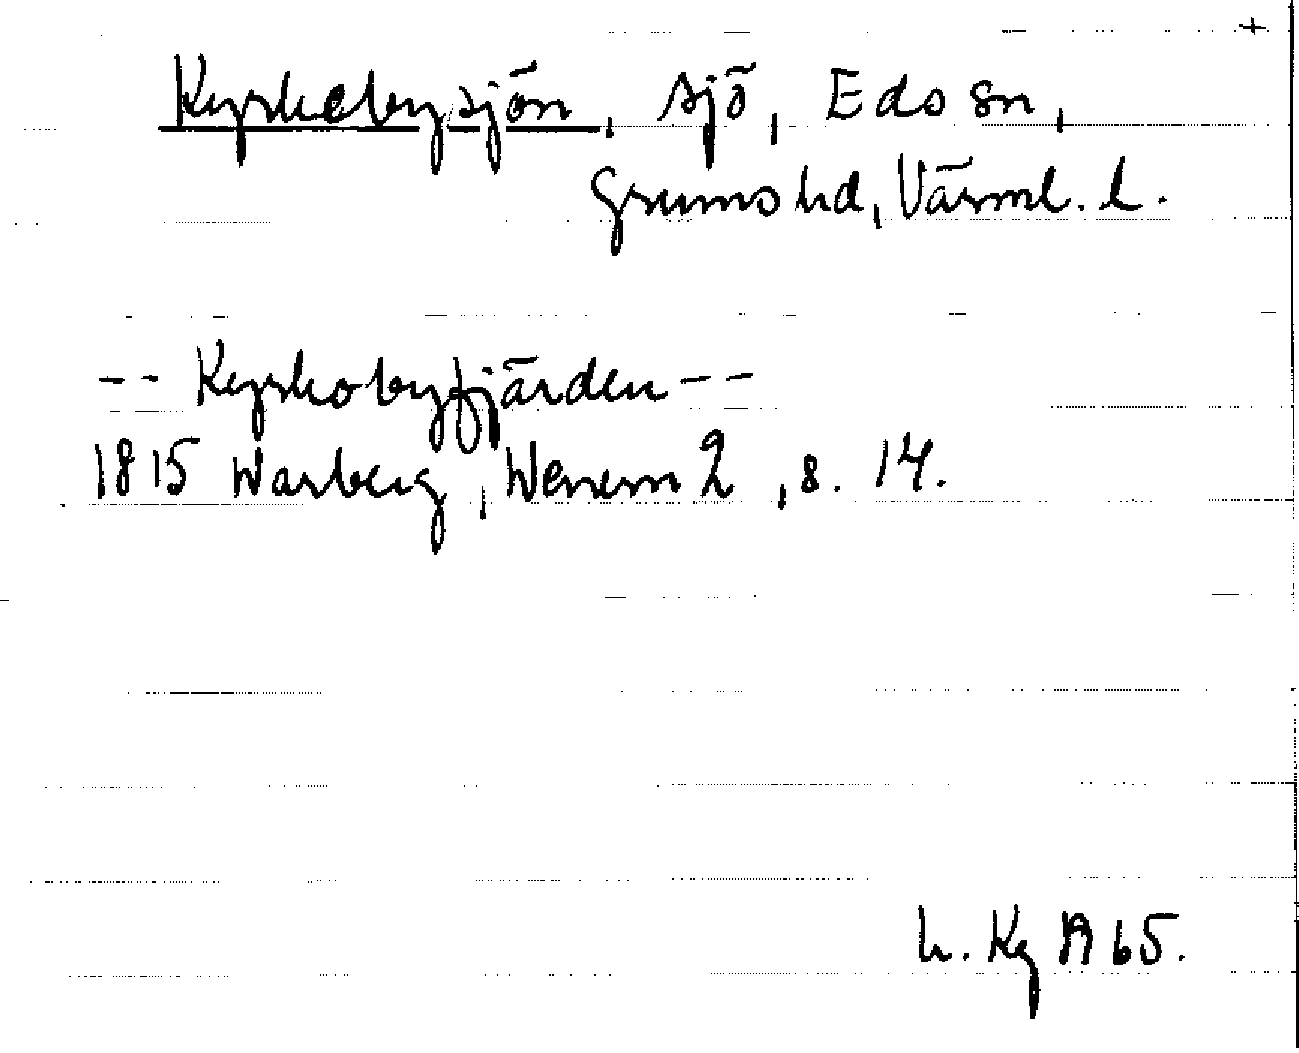 +
Kyrkebysjön, sjö, Eds sn,
Grums hd, Värml. l.
-- Kyrkobyfjärden --
1815 Warberg, Wenern 2, s. 14.
h. Kg A 65.